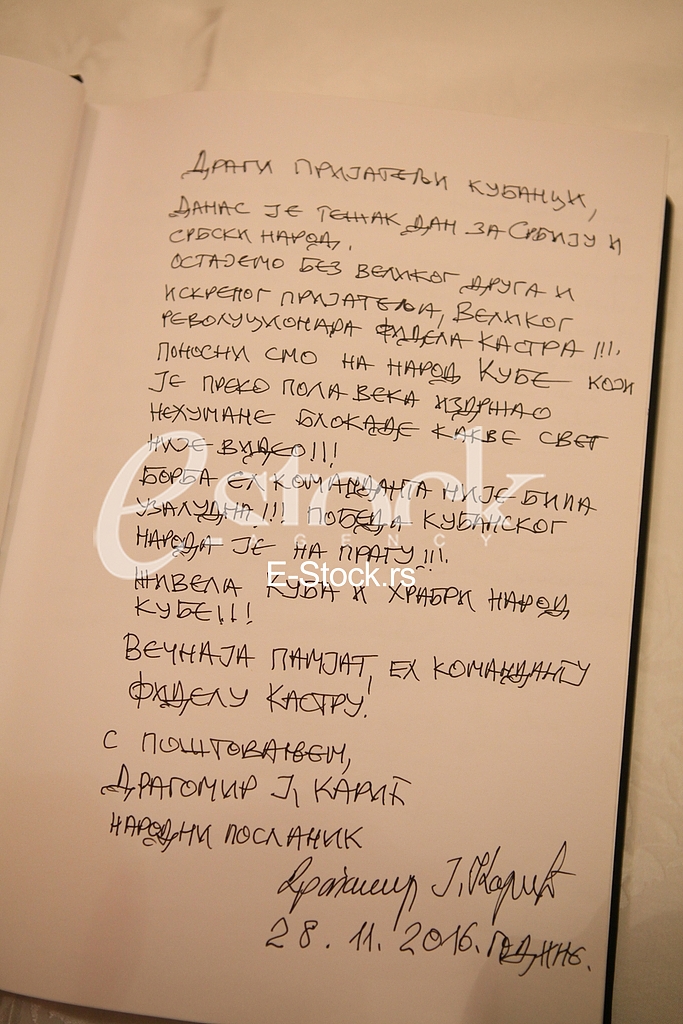 Драги пријатељи Кубанци,
Данас је тешак дан за Србију и
српски народ.
Остајемо без великог друга и
искреног пријатеља, Великог
револуционара Фидела Кастра!!!
Поносни смо на народ Кубе који
је преко пола века издржао
нехумане блокаде какве свет
није видео!!!
Борба ел команданта није била
узалудна!!! Победа кубанског
народа је на прагу!!!
Живела Куба и храбри народ
Кубе!!!
Вечнаја памјат, ел команданту
Фиделу Кастру!
С поштовањем,
Драгомир Ј, Карић
народни посланик
Драгомир Ј. Карић
28. 11. 2016. године.
estock
AGENCY
E-Stock.rs